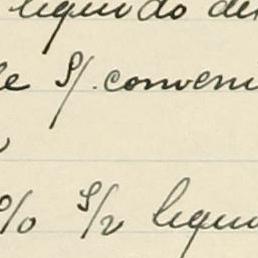 liquido de
le S/. conveni
% S/2 liqui